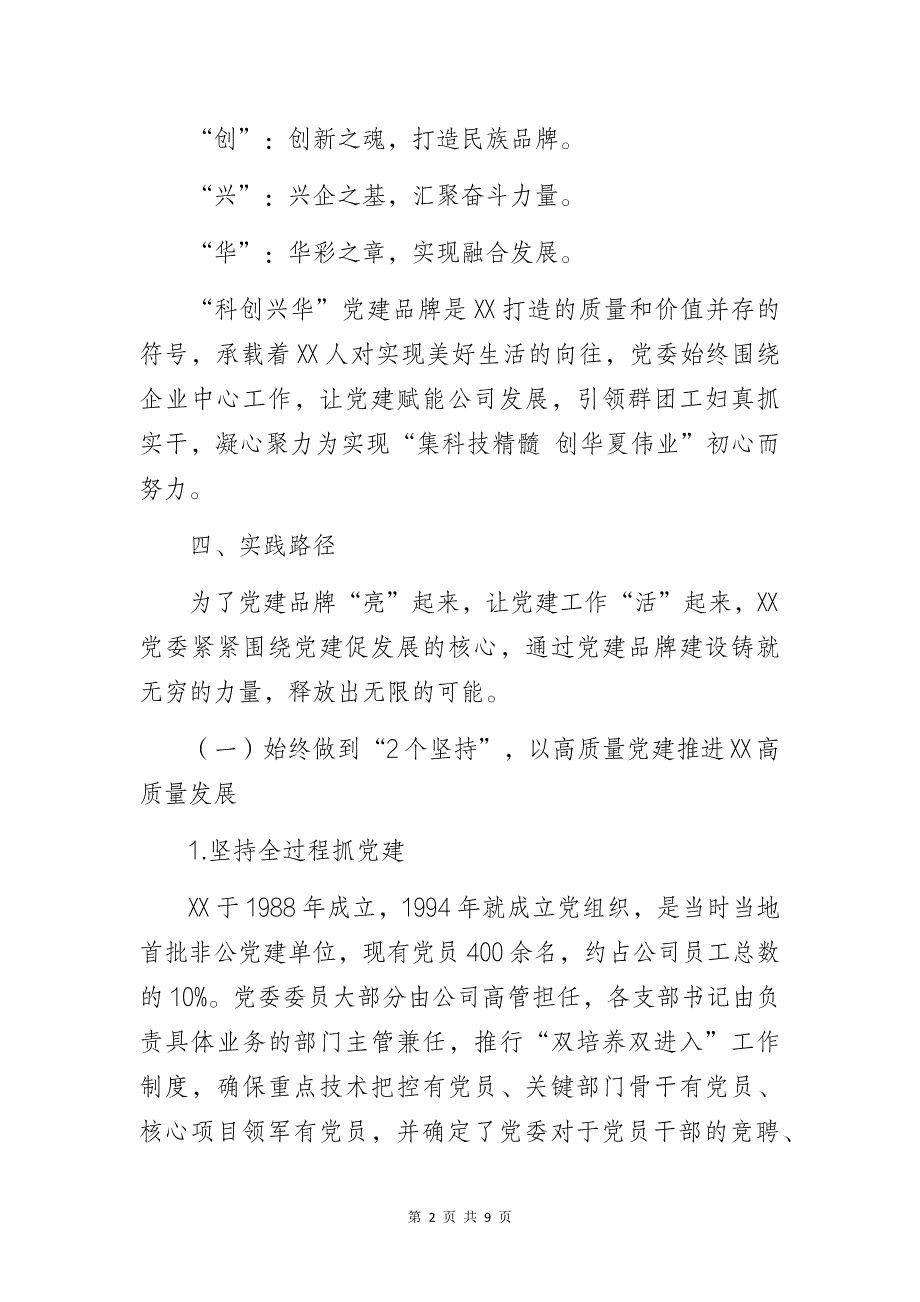 “创”：创新之魂，打造民族品牌。
“兴”：兴企之基，汇聚奋斗力量。
“华”：华彩之章，实现融合发展。
“科创兴华”党建品牌是 XX 打造的质量和价值并存的
符号，承载着 XX 人对实现美好生活的向往，党委始终围绕
企业中心工作，让党建赋能公司发展，引领群团工妇真抓
实干，凝心聚力为实现“集科技精髓 创华夏伟业”初心而
努力。
四、实践路径
为了党建品牌“亮”起来，让党建工作“活”起来，XX
党委紧紧围绕党建促发展的核心，通过党建品牌建设铸就
无穷的力量，释放出无限的可能。
（一）始终做到“2 个坚持”，以高质量党建推进 XX 高
质量发展
1.坚持全过程抓党建
XX 于 1988 年成立，1994 年就成立党组织，是当时当地
首批非公党建单位，现有党员 400 余名，约占公司员工总数
的 10%。党委委员大部分由公司高管担任，各支部书记由负
责具体业务的部门主管兼任，推行“双培养双进入”工作
制度，确保重点技术把控有党员、关键部门骨干有党员、
核心项目领军有党员，并确定了党委对于党员干部的竞聘、
第 2 页 共 9 页